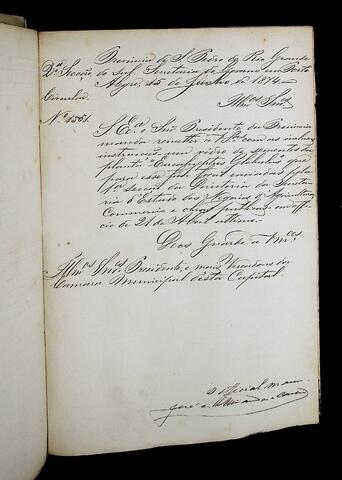 Provincia de S. Pedro do Rio Grande
2ª Secção do Sul. Secretaria do Governo em Porto
Alegre, 15 de Junho de 1874.
Circular. Illmos Snrs
Nº
S. Exª o Snr. Presidente da Provincia
manda remetter a V. Sas com as inclusas
instrucções, um vidro de sementes da
planta "Eucalyptus Globulus" que
para esse fim foram enviadas pela
1ª Secção da Directoria da Secretaria
d'Estado dos Negocios d'Agricultura,
Commercio e Obras Publicas em offi-
cio de 21 de Abril ultimo.
Deos Guarde a Vmces
Illmos Snrs Presidente, e mais Vereadores da
Camara Municipal desta Capital.
O official maior
José